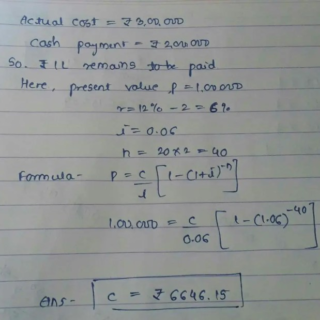 Actual cost = ₹ 3,00,000
Cash payment = ₹ 2,00,000
So. ₹ 1L remains to be paid
Here, present value, P = 1,00,000
r = 12% - 2 = 6%
i = 0.06
n = 20 x 2 = 40
Formula - P = c/i [1-(1+i)^-n]
1,00,000 = c/0.06 [1-(1.06)^-40]
Ans - c = ₹ 6646.15